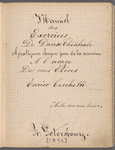 Manuel
des
Exercices
De Danse Théatrale
A pratiquer chaque jour de la semaine
A l'usage
De mes Elèves
Enrico Cecchetti
St. Petersbourg